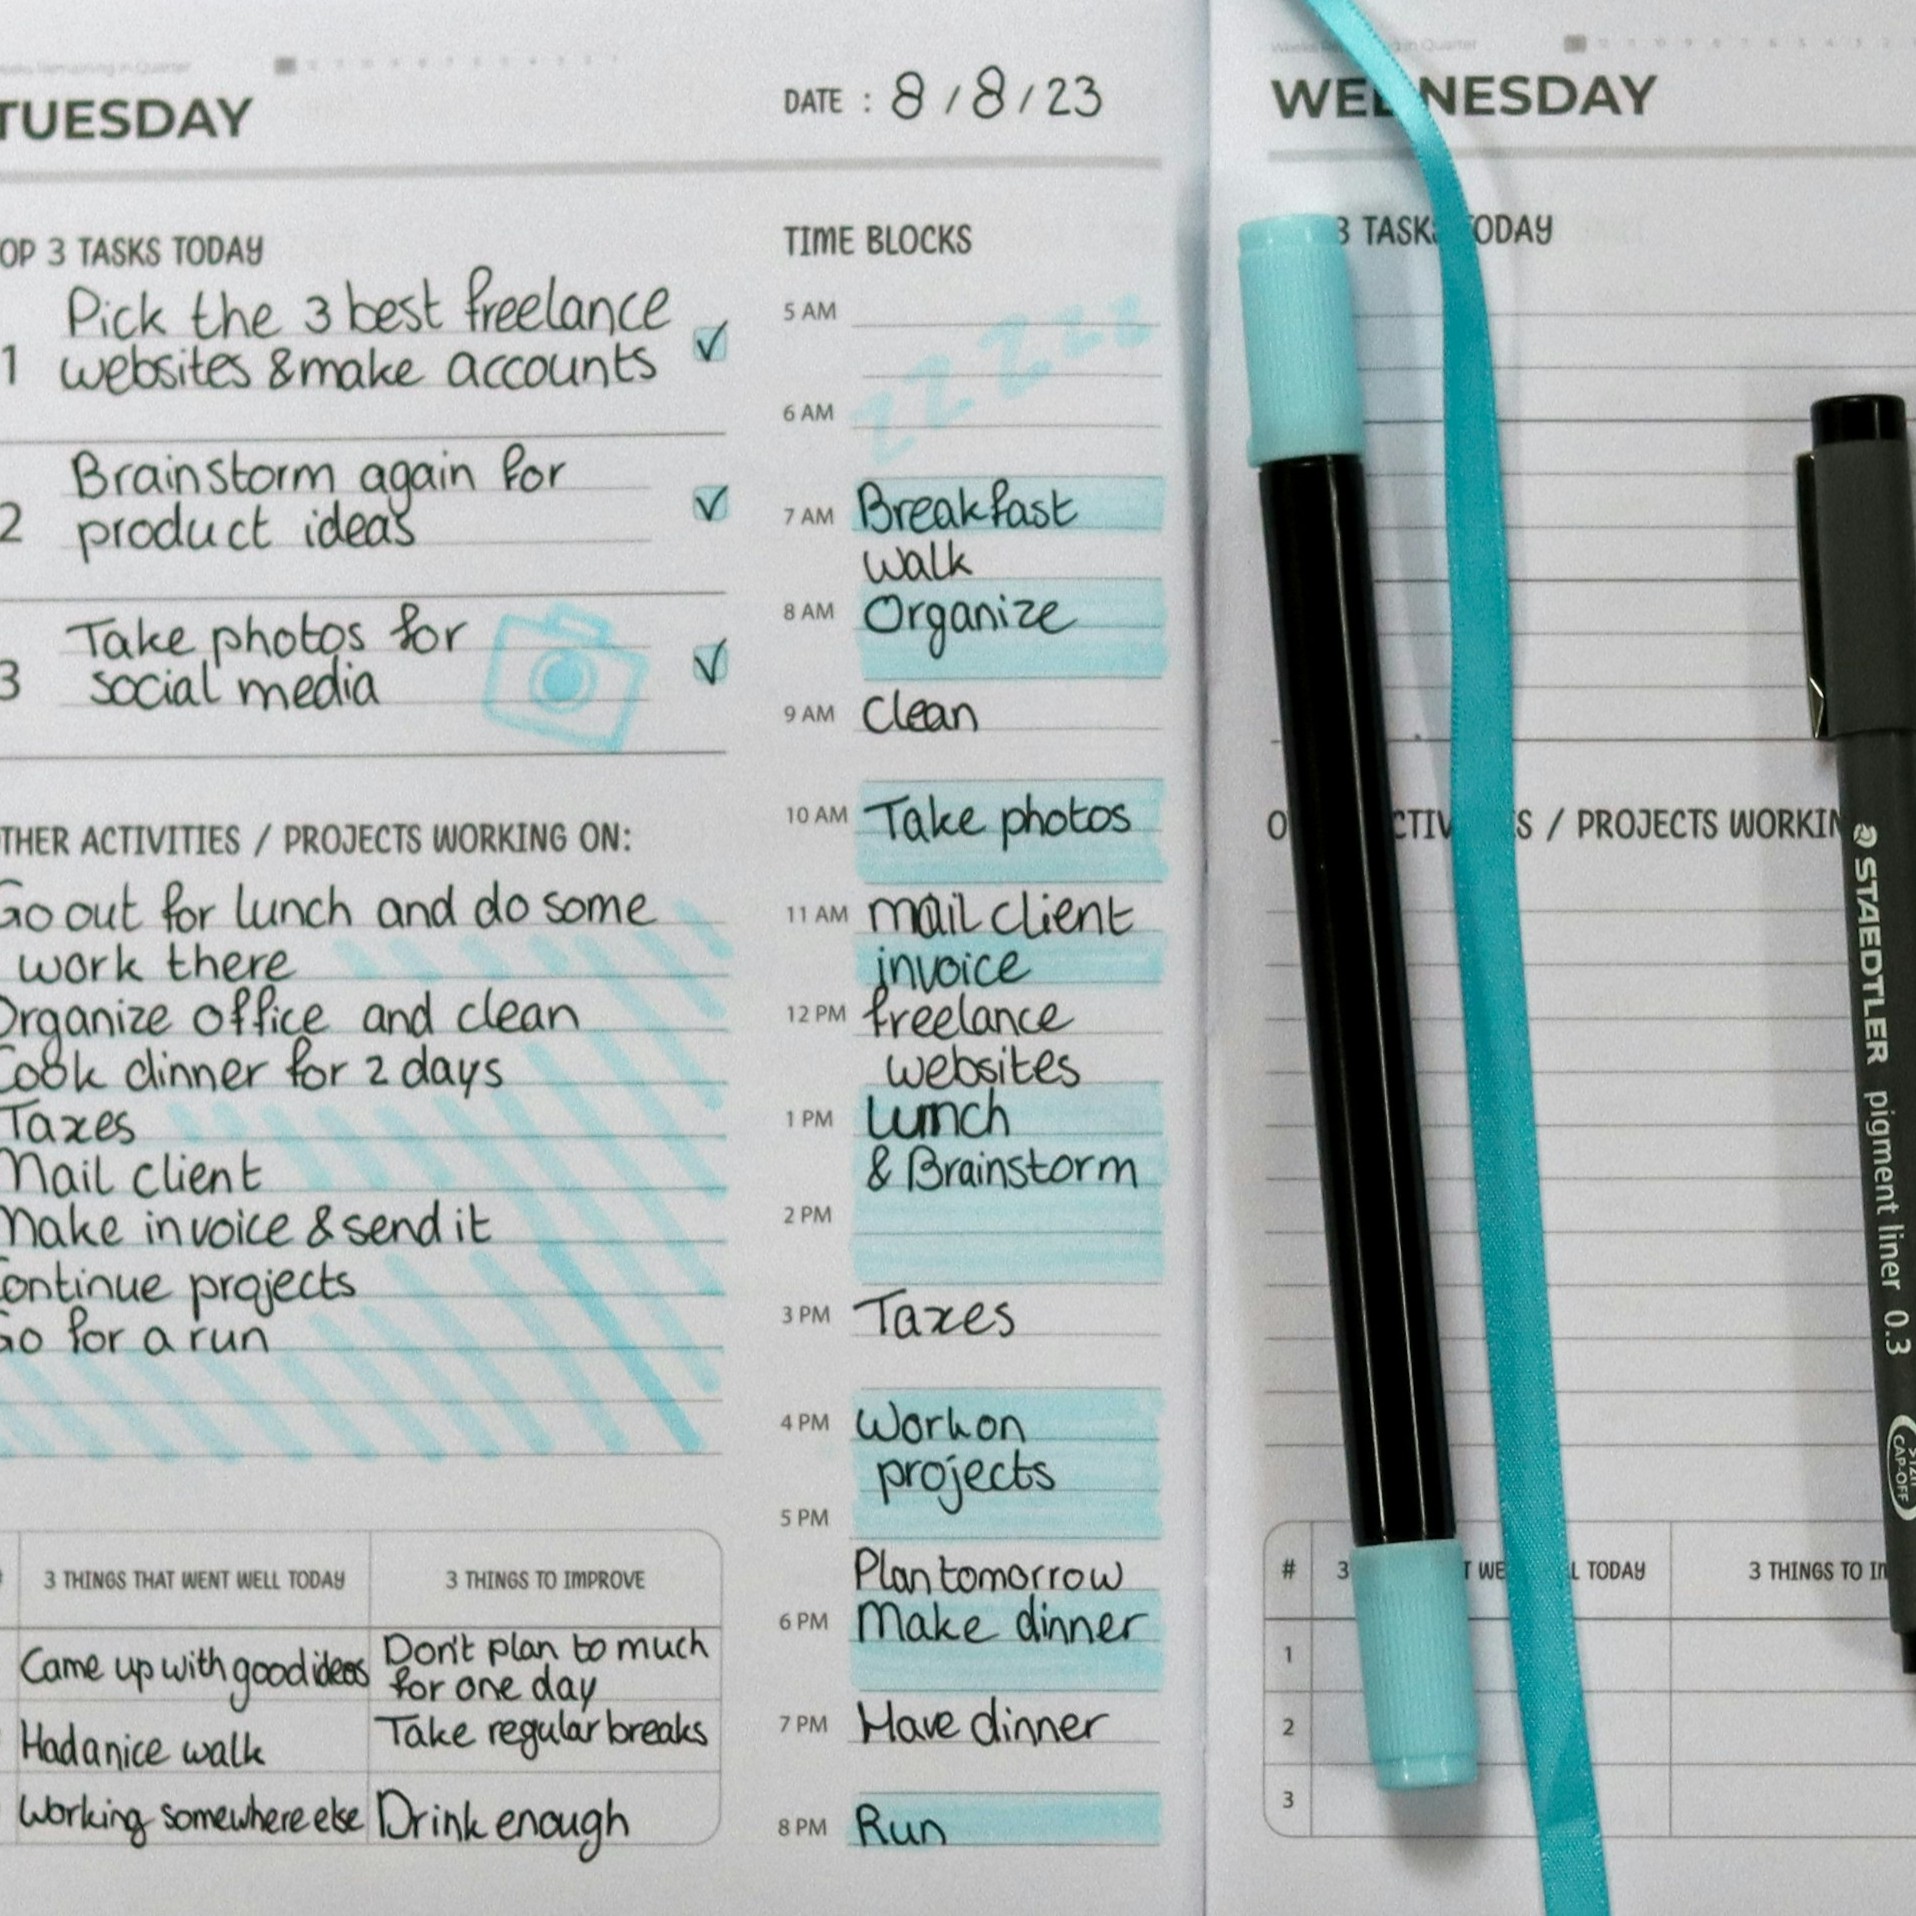 Weeks Remaining in Quarter
TUESDAY
DATE : 8/8/23
OP 3 TASKS TODAY
1 Pick the 3 best freelance
websites & make accounts
2 Brainstorm again for
product ideas
3 Take photos for
social media
THER ACTIVITIES / PROJECTS WORKING ON:
Go out for lunch and do some
work there
Organize office and clean
Cook dinner for 2 days
Taxes
Mail client
Make invoice & send it
Continue projects
Go for a run
3 THINGS THAT WENT WELL TODAY
3 THINGS TO IMPROVE
Came up with good ideas
Don't plan to much
for one day
Had a nice walk
Take regular breaks
Working somewhere else
Drink enough
TIME BLOCKS
5 AM
zzzzzz
6 AM
7 AM Breakfast
walk
8 AM Organize
9 AM Clean
10 AM Take photos
11 AM mail client
invoice
12 PM freelance
websites
1 PM Lunch
& Brainstorm
2 PM
3 PM Taxes
4 PM Work on
projects
5 PM
Plan tomorrow
6 PM Make dinner
7 PM Have dinner
8 PM Run
WEDNESDAY
3 TASKS TODAY
/ PROJECTS WORKIN
# 3 TODAY
3 THINGS TO
1
2
3
STAEDTLER pigment liner 0.3
CAP-OFF